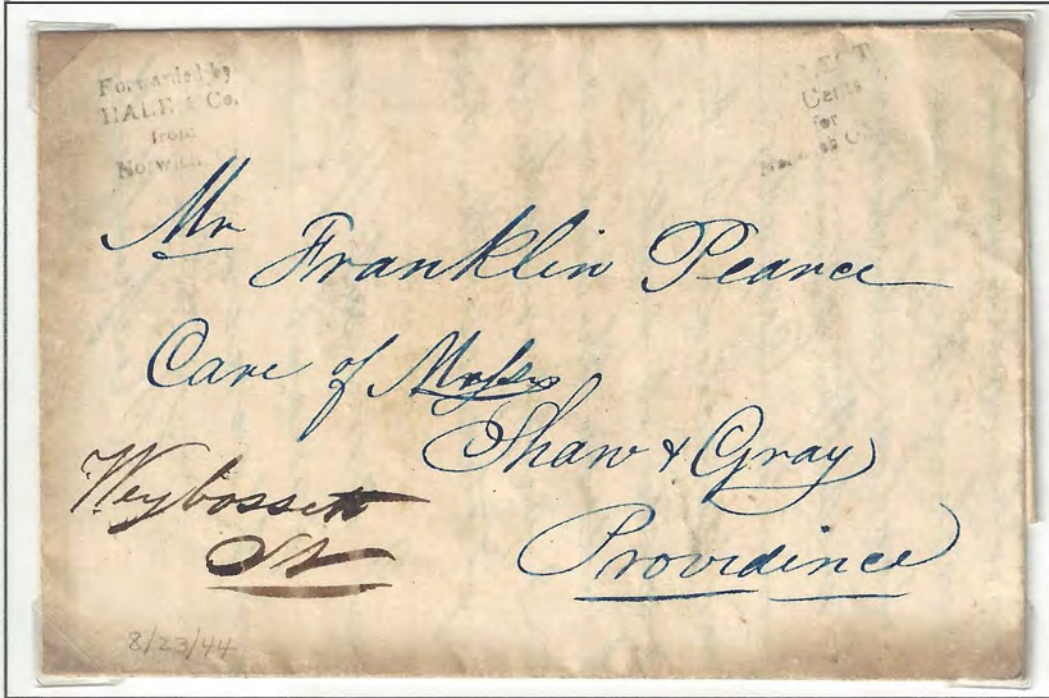 Forwarded by
HALE & Co.
from
Norwich
Cents
for
Mr Franklin Pearce
Care of Messrs
Shaw & Gray
Weybossett
St
Providince
8/23/44